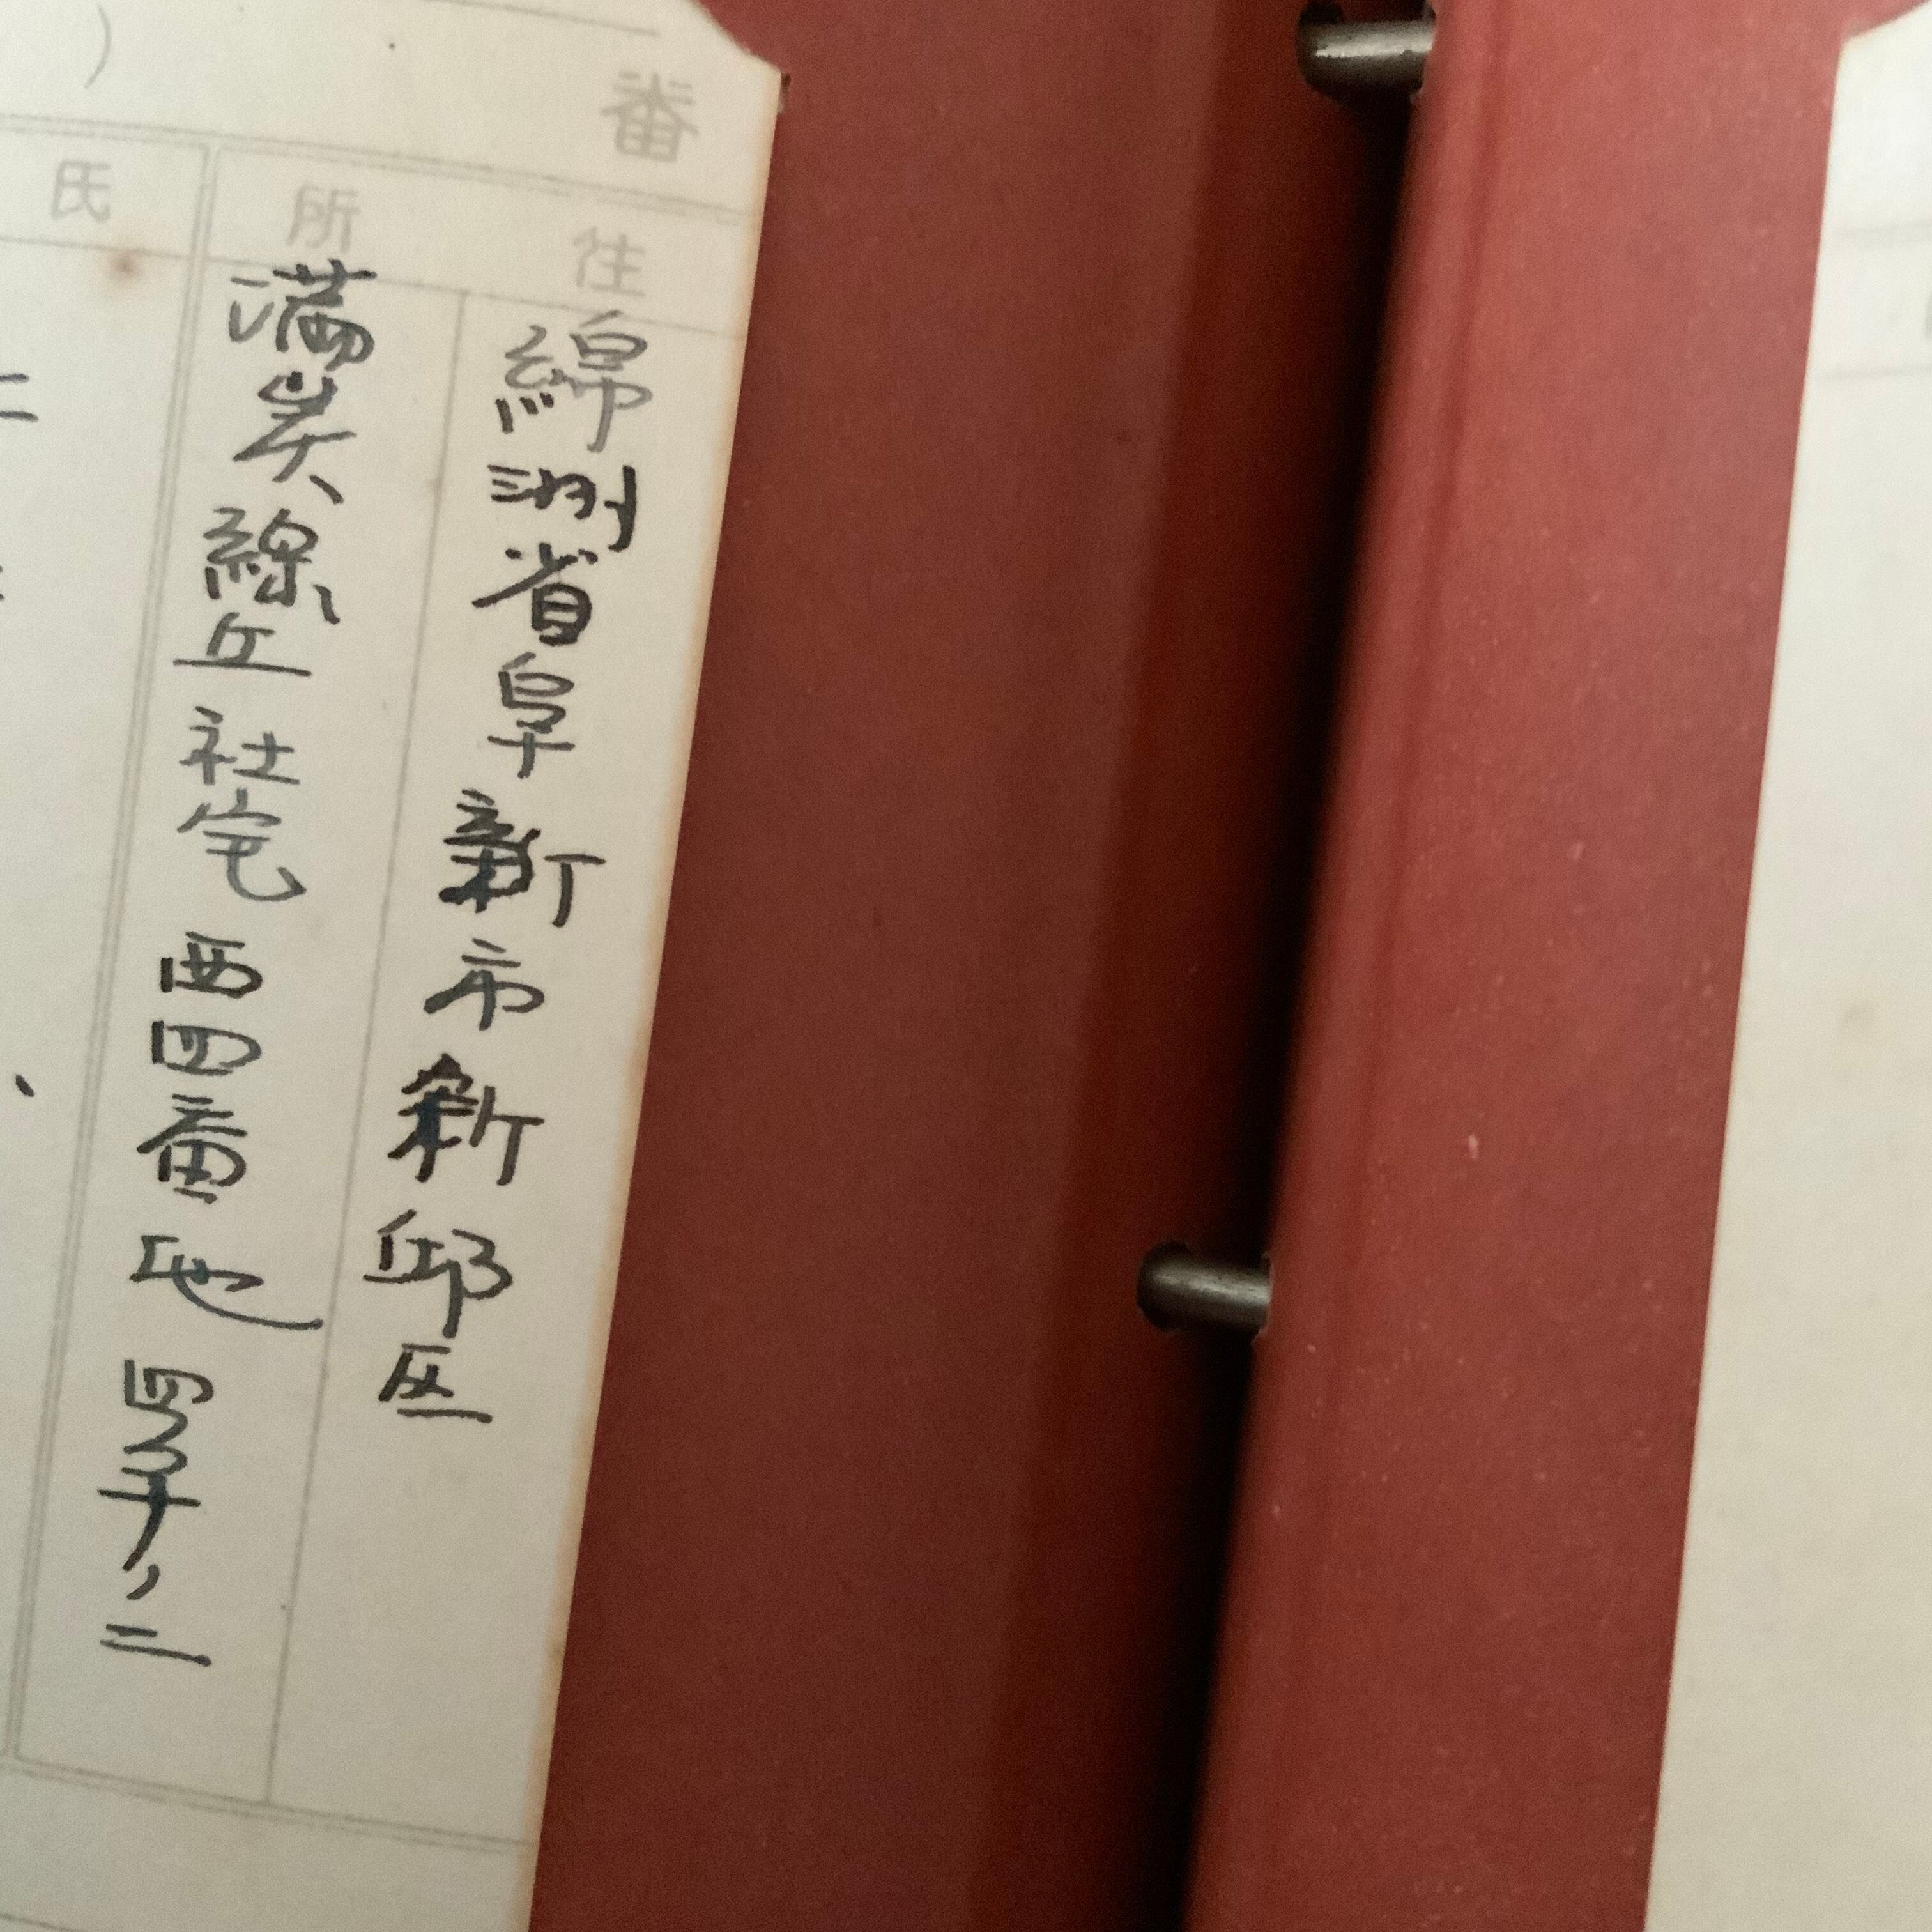 番
住所
綿洲省阜新市新邱区
満炭緑丘社宅西四番地四号ノ二
氏